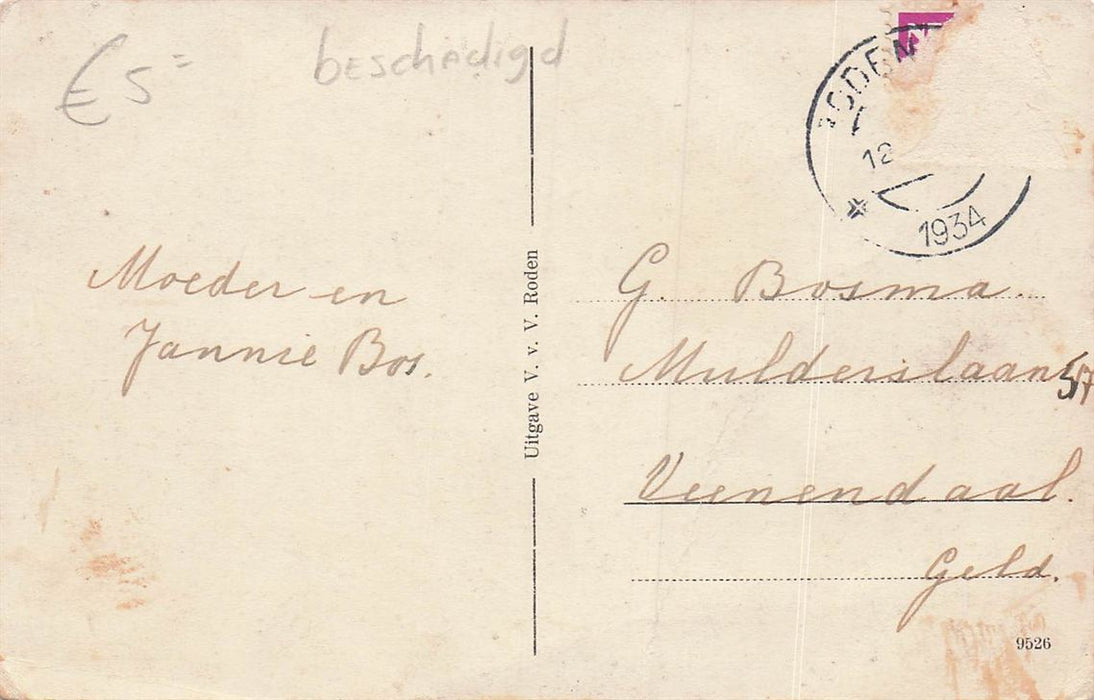 € 5=
beschadigd
RODEN
12
1934
Moeder en
Jannie Bos.
Uitgave V. v. V. Roden
G. Bosma.
Mulderslaan 57
Veenendaal.
Geld.
9526